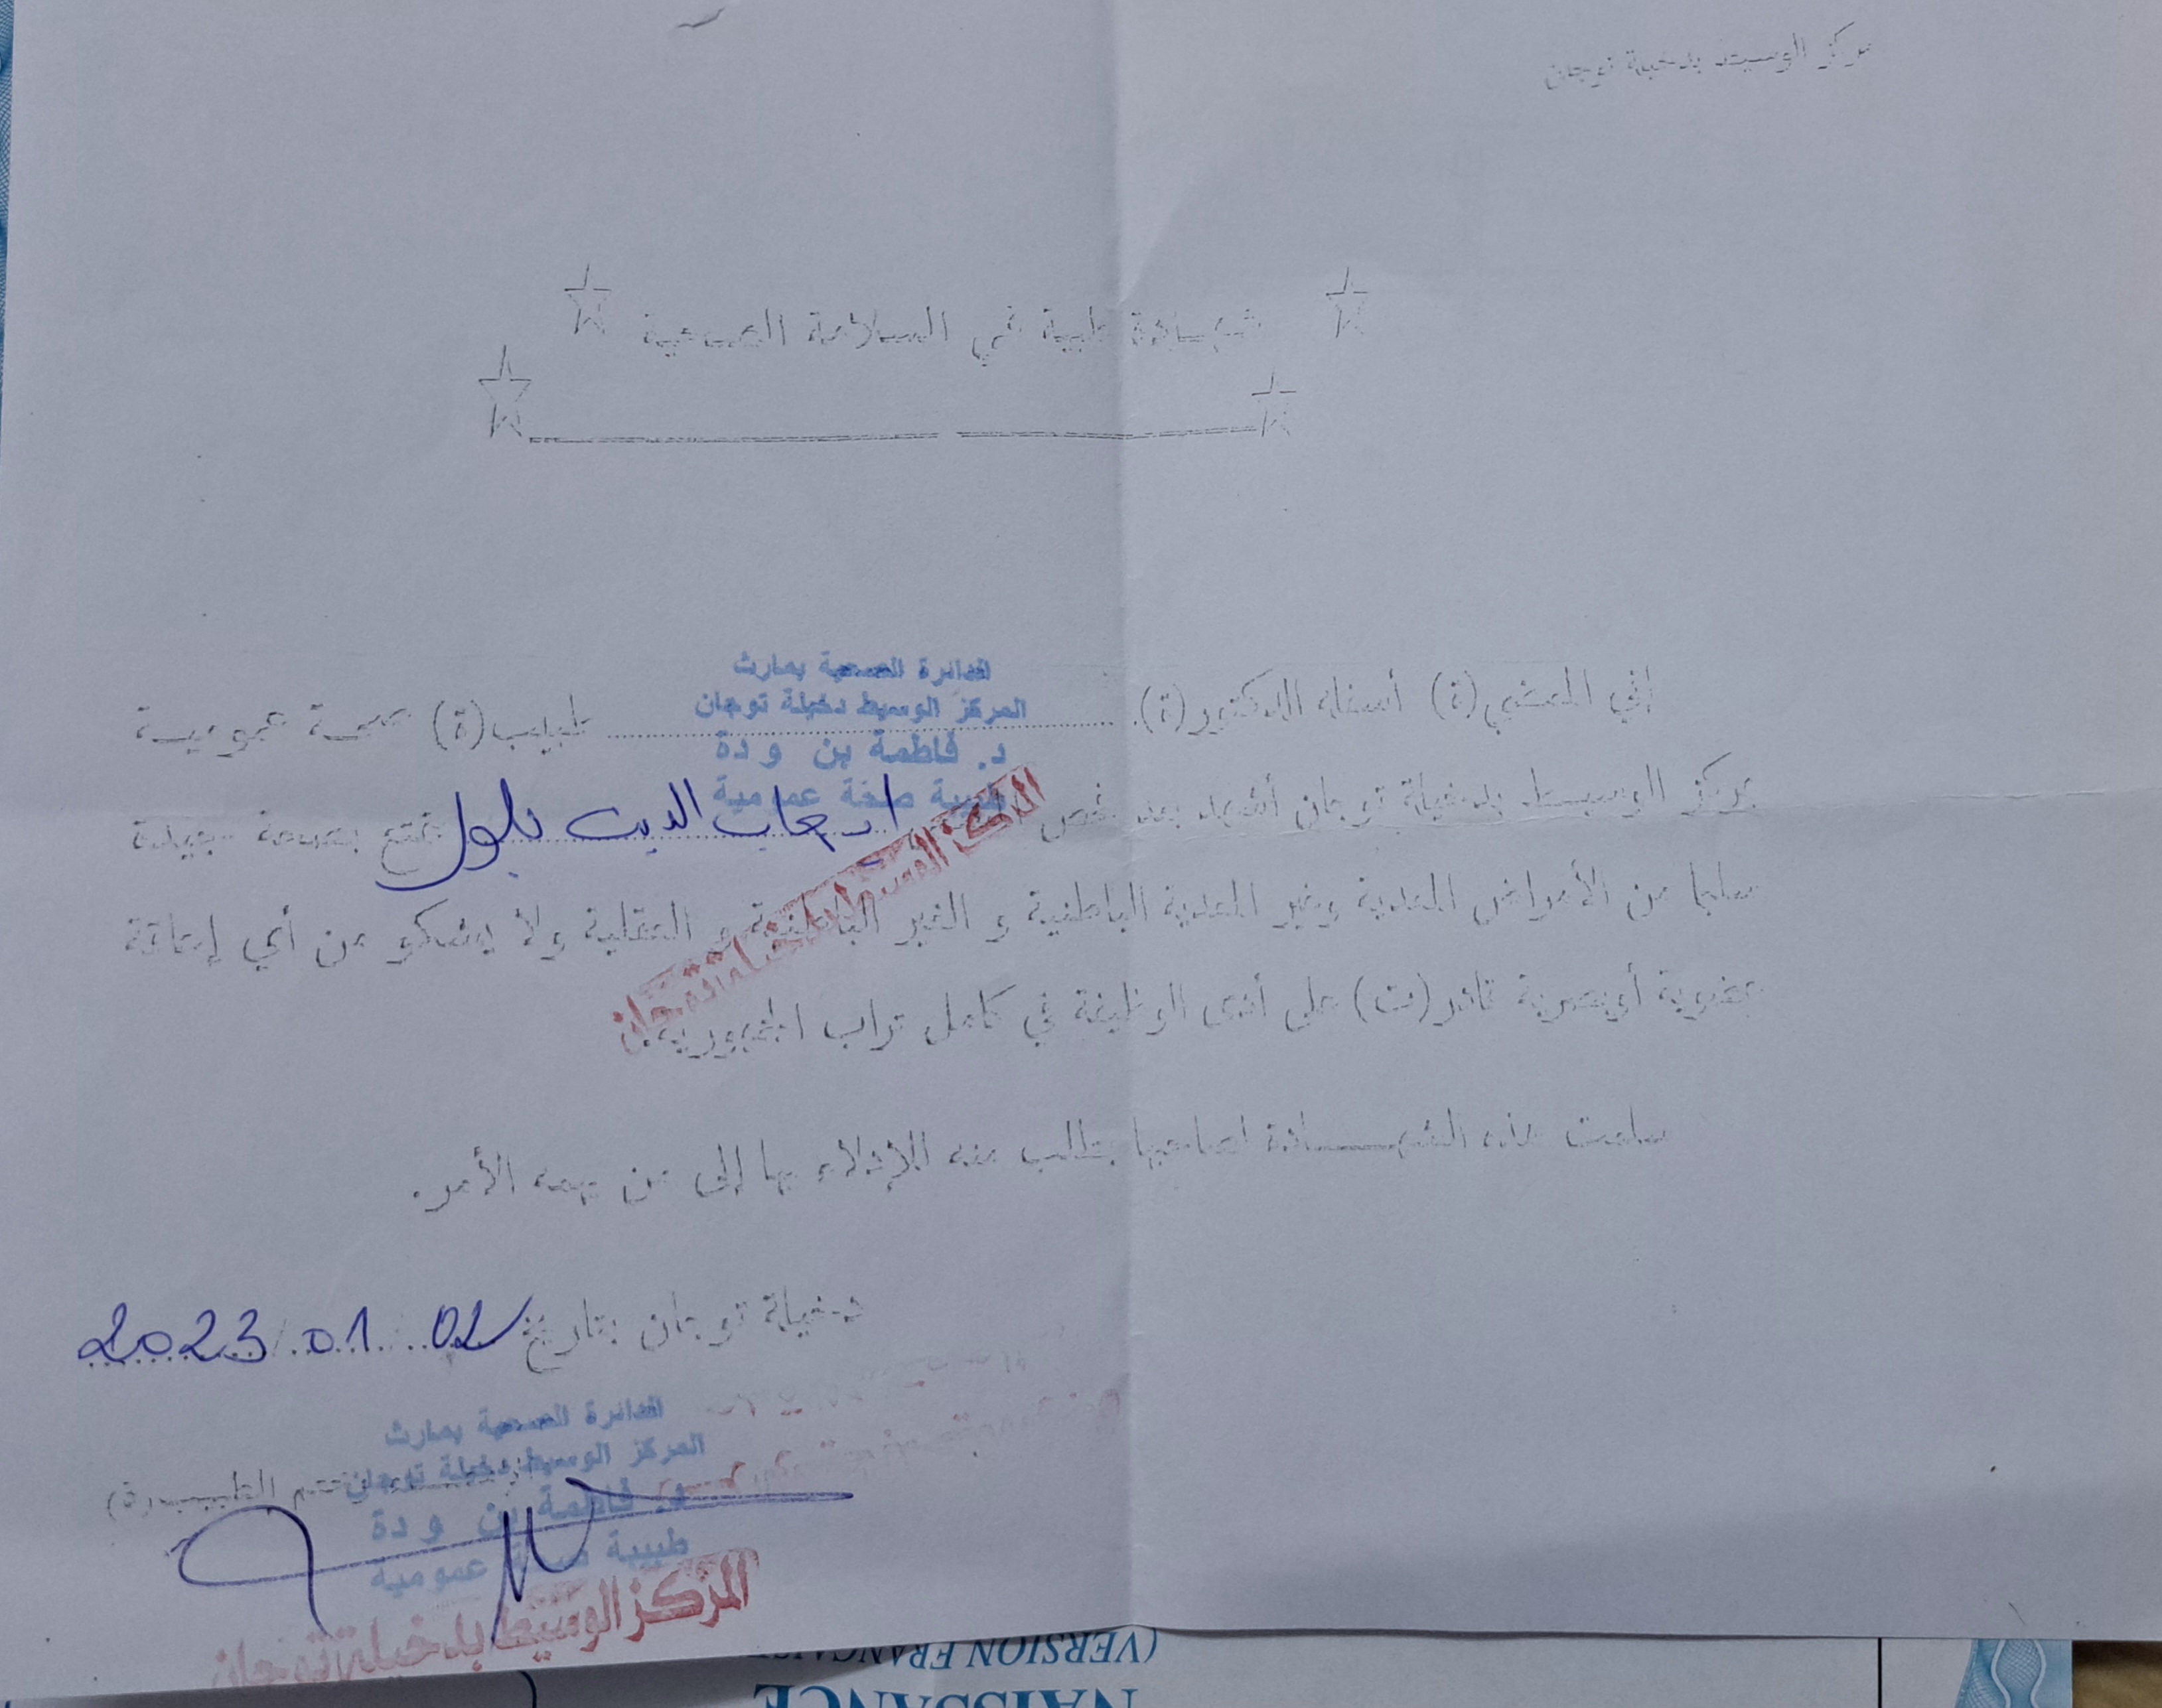 مركز الوسيط بدخيلة توجان
شهادة طبية في السلامة الصحية
الدائرة الصحية بمارث
المركز الوسيط دخيلة توجان
د. فاطمة بن ودة
طبيبة صحة عمومية
إني الممضي(ة) أسفله الدكتور(ة) طبيب(ة) صحة عمومية
بمركز الوسيط بدخيلة توجان أشهد بعد فحص الدين بلول يتمتع بصحة جيدة
المركز الوسيط بدخيلة توجان
سليما من الأمراض المعدية وغير المعدية الباطنية و الغير الباطنية و العقلية ولا يشكو من أي إعاقة
عضوية أوبصرية قادر(ت) على أدى الوظيفة في كامل تراب الجمهورية.
سلمت هذه الشهادة لصاحبها بطلب منه للإدلاء بها إلى من يهمه الأمر.
دخيلة توجان بتاريخ 02 01 2023
ختم الطبيب(ة)
الدائرة الصحية بمارث
المركز الوسيط دخيلة توجان
د. فاطمة بن ودة
طبيبة صحة عمومية
المركز الوسيط بدخيلة توجان
(VERSION FRANÇAISE
NAISSANCE